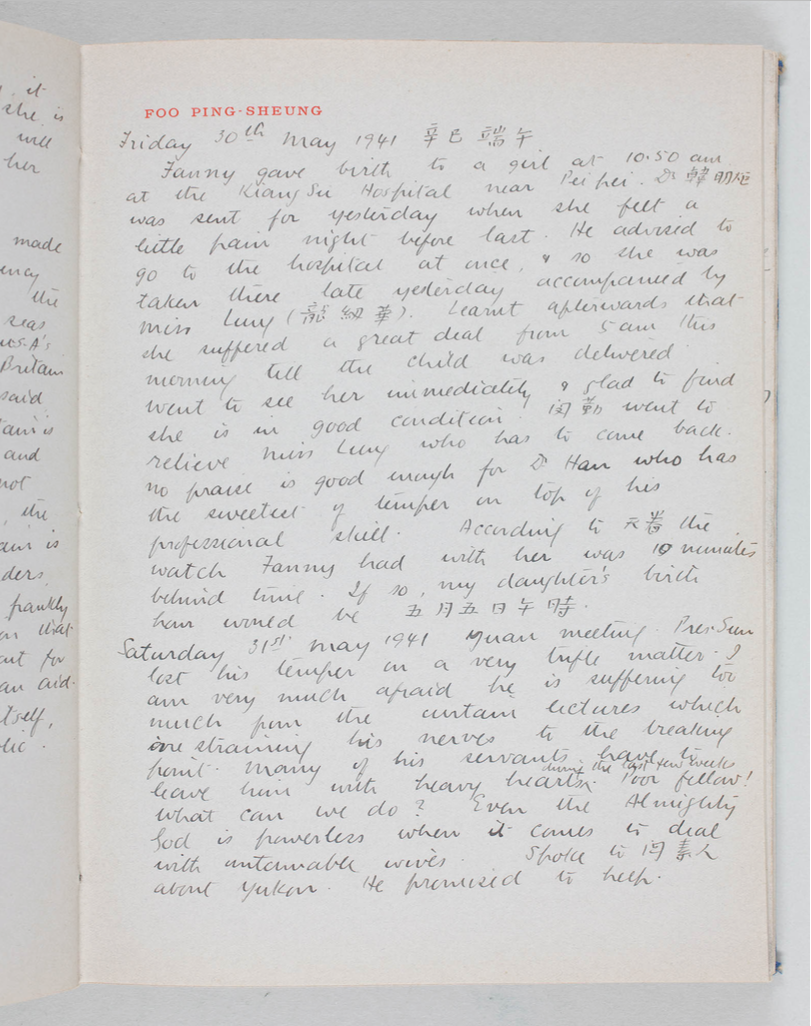 it
she is
will
her
made
the
seas
U.S.A's
Britain
said
and
not
, the
ders.
frankly
that
for
an aid
itself,
FOO PING-SHEUNG
Friday 30th May 1941 辛巳 端午
Fanny gave birth to a girl at 10.50 am
at the KiangSu Hospital near Peipei. Dr 韓明炬
was sent for yesterday when she felt a
little pain night before last. He advised to
go to the hospital at once, & so she was
taken there late yesterday accompanied by
Miss Lung (龍 華). Learnt afterwards that
she suffered a great deal from 5 am this
morning till the child was delivered
went to see her immediately & glad to find
she is in good condition. 勤 went to
relieve Miss Lung who has to come back.
no praise is good enough for Dr Han who has
the sweetest of temper on top of his
professional skill. According to the
watch Fanny had with her was 10 minutes
behind time. If so, my daughter's birth
hour would be 五月五日午時.
Saturday 31st May 1941 Yuan meeting. Pres. Sun
lost his temper on a very trifle matter. I
am very much afraid he is suffering too
much from the curtain lectures which
are straining his nerves to the breaking
point. Many of his servants have to
leave him with heavy hearts during the last few weeks. Poor fellow!
What can we do? Even the Almighty
God is powerless when it comes to deal
with untamable wives. Spoke to 素人
about Yukon. He promised to help.